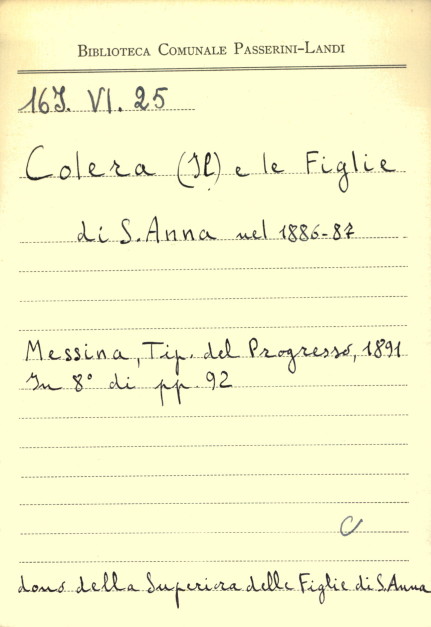 BIBLIOTECA COMUNALE PASSERINI-LANDI
16J. VI. 25
Colera (Il) e le Figlie
di S. Anna nel 1886-87
Messina, Tip. del Progresso, 1891
In 8° di pp. 92
C
dono della Superiora delle Figlie di S. Anna